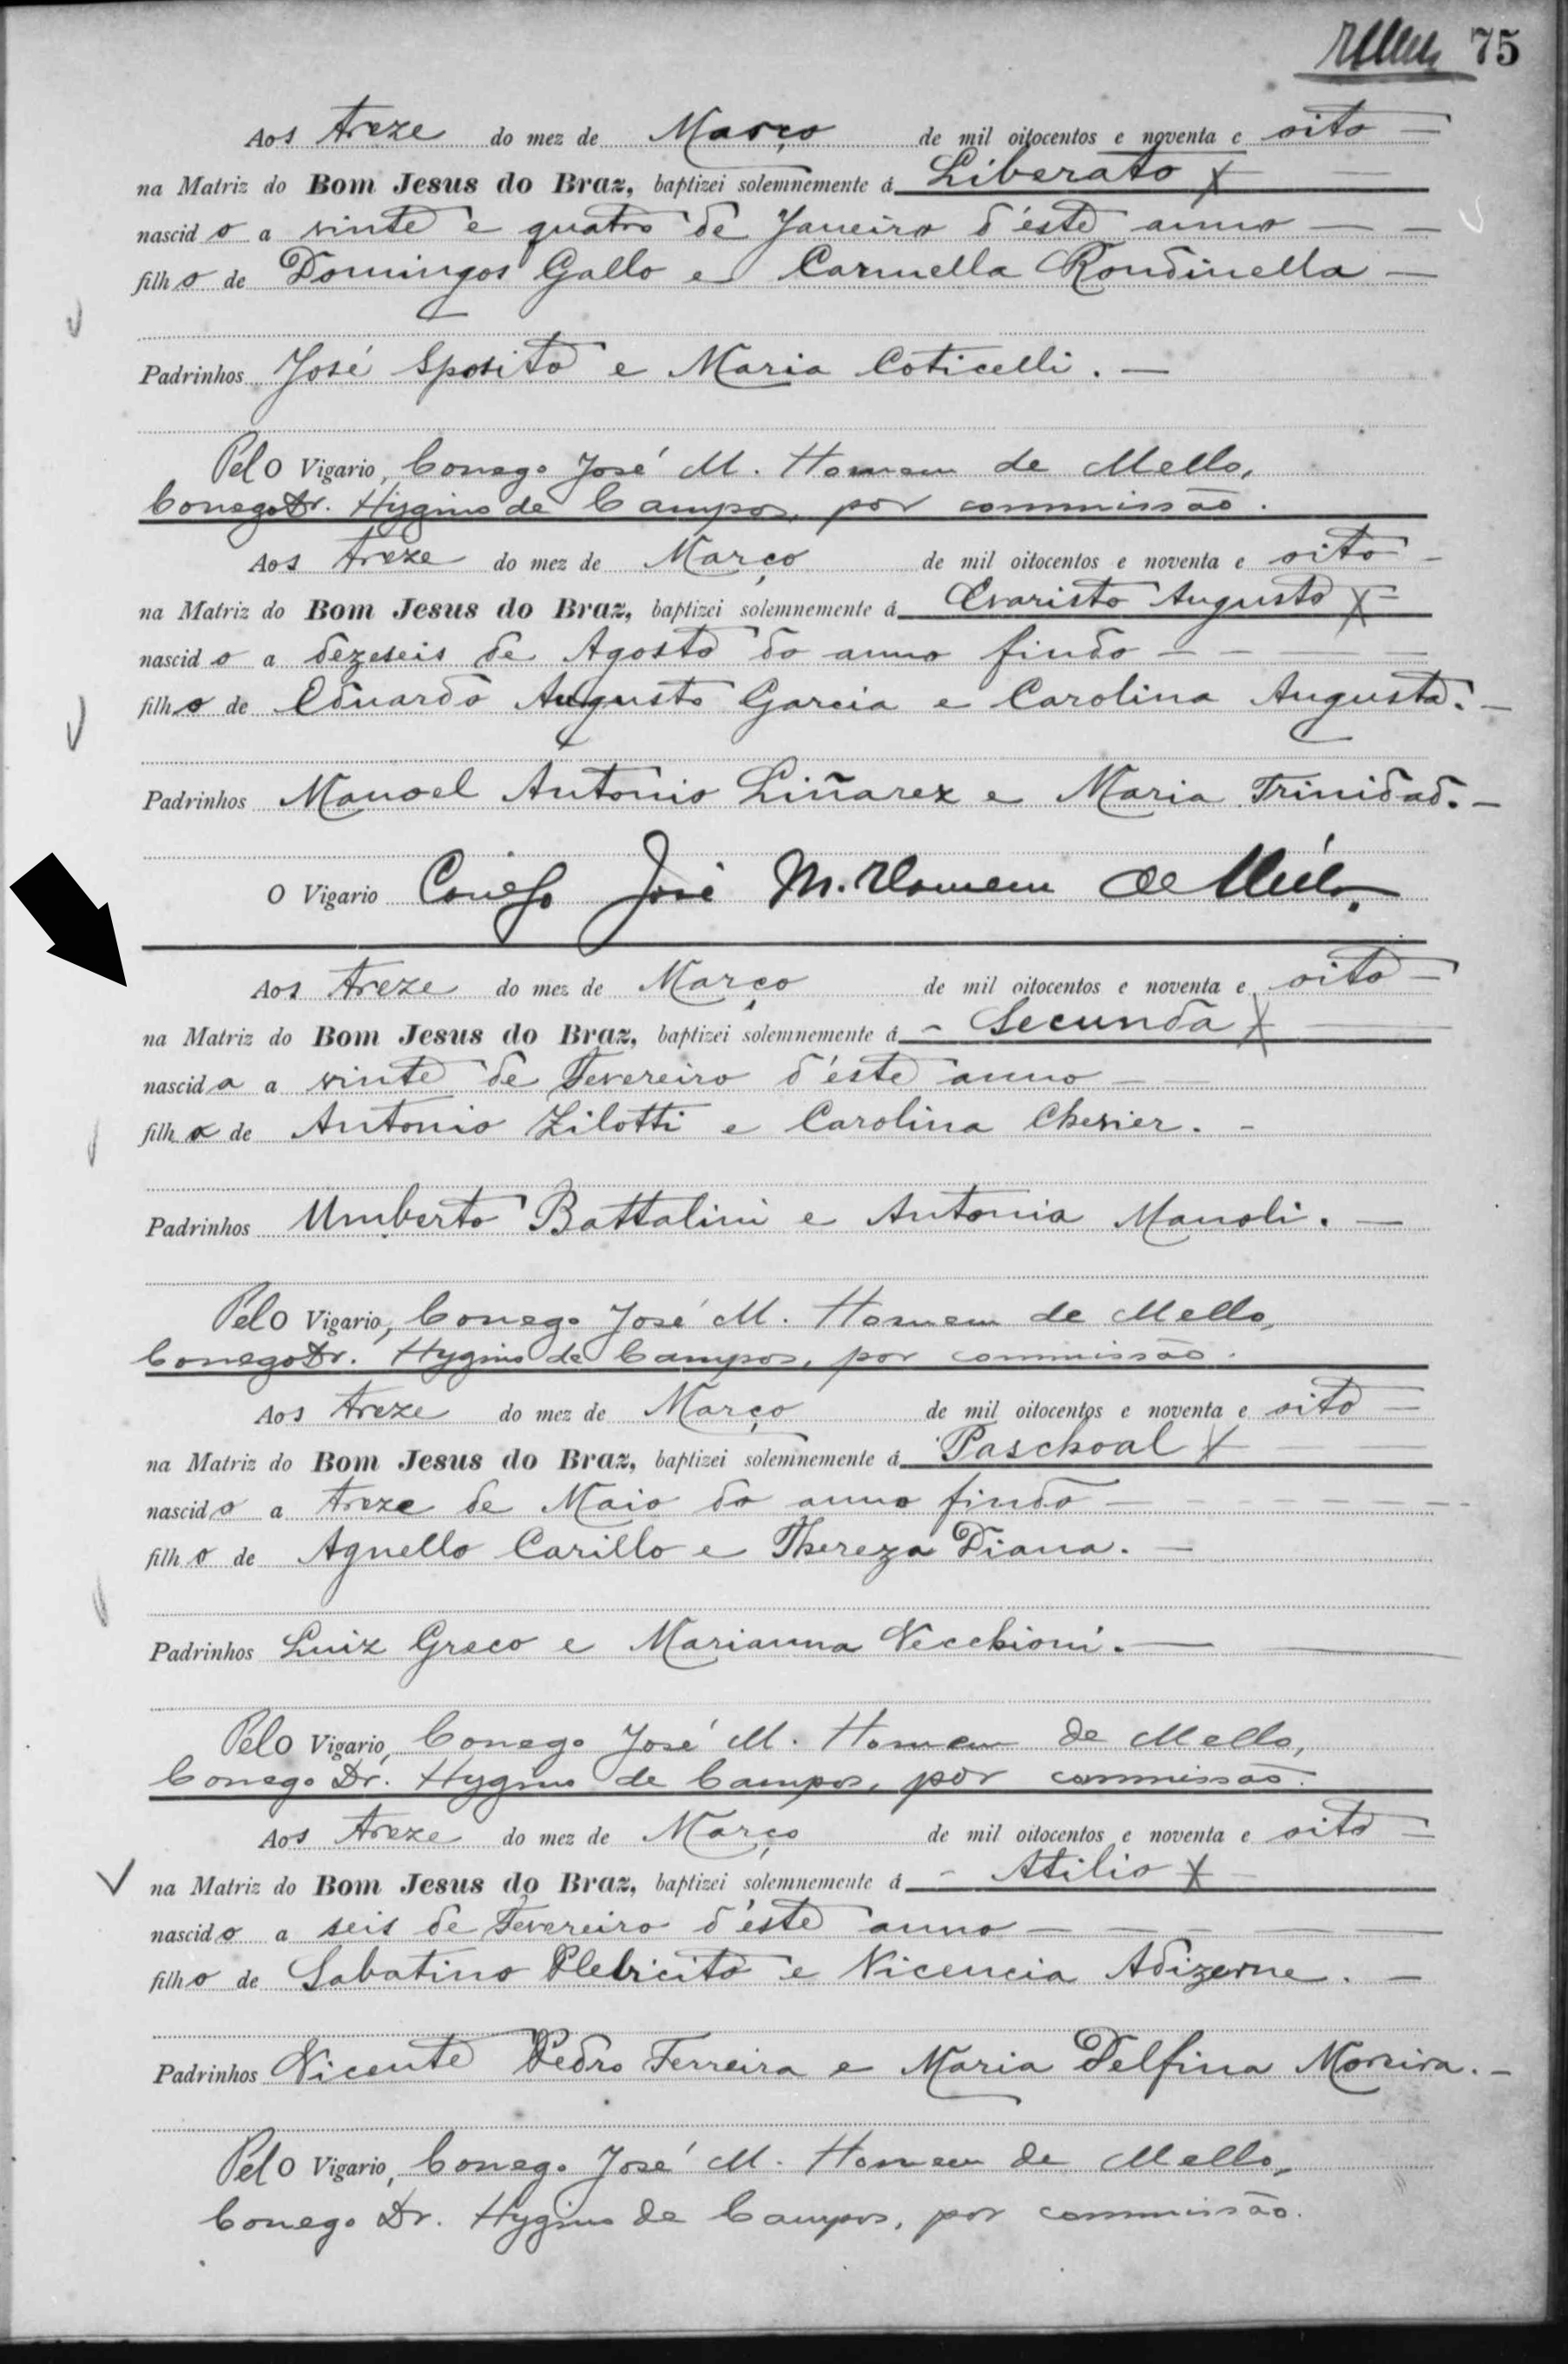 75
Aos treze do mez de Março de mil oitocentos e noventa e oito
na Matriz do Bom Jesus do Braz, baptizei solemnemente á Liberato
nascido a vinte e quatro de Janeiro d'éste anno
filho de Domingos Gallo e Carmella Rondinella
Padrinhos José Sposito e Maria Coticelli.
Pelo Vigario, Conego José M. Homem de Mello,
Conego Dr. Hygino de Campos, por commissão.
Aos treze do mez de Março de mil oitocentos e noventa e oito
na Matriz do Bom Jesus do Braz, baptizei solemnemente á Evaristo Augusto
nascido a dezeseis de Agosto do anno findo
filho de Eduardo Augusto Garcia e Carolina Augusta.
Padrinhos Manoel Antonio Liñarez e Maria Trinidad.
O Vigario Conego José M. Homem de Mello.
Aos treze do mez de Março de mil oitocentos e noventa e oito
na Matriz do Bom Jesus do Braz, baptizei solemnemente á Secunda
nascida a vinte de Fevereiro d'éste anno
filha de Antonio Zilotti e Carolina Chevier.
Padrinhos Umberto Battalini e Antonia Manoli.
Pelo Vigario, Conego José M. Homem de Mello,
Conego Dr. Hygino de Campos, por commissão.
Aos treze do mez de Março de mil oitocentos e noventa e oito
na Matriz do Bom Jesus do Braz, baptizei solemnemente á Paschoal
nascido a treze de Maio do anno findo
filho de Agnello Carillo e Thereza Diana.
Padrinhos Luiz Greco e Marianna Vecchioni.
Pelo Vigario, Conego José M. Homem de Mello,
Conego Dr. Hygino de Campos, por commissão.
Aos treze do mez de Março de mil oitocentos e noventa e oito
na Matriz do Bom Jesus do Braz, baptizei solemnemente á Atilio
nascido a seis de Fevereiro d'éste anno
filho de Sabatino Plebicito e Vicencia Adizerne.
Padrinhos Vicente Pedro Ferreira e Maria Delfina Moreira.
Pelo Vigario, Conego José M. Homem de Mello,
Conego Dr. Hygino de Campos, por commissão.